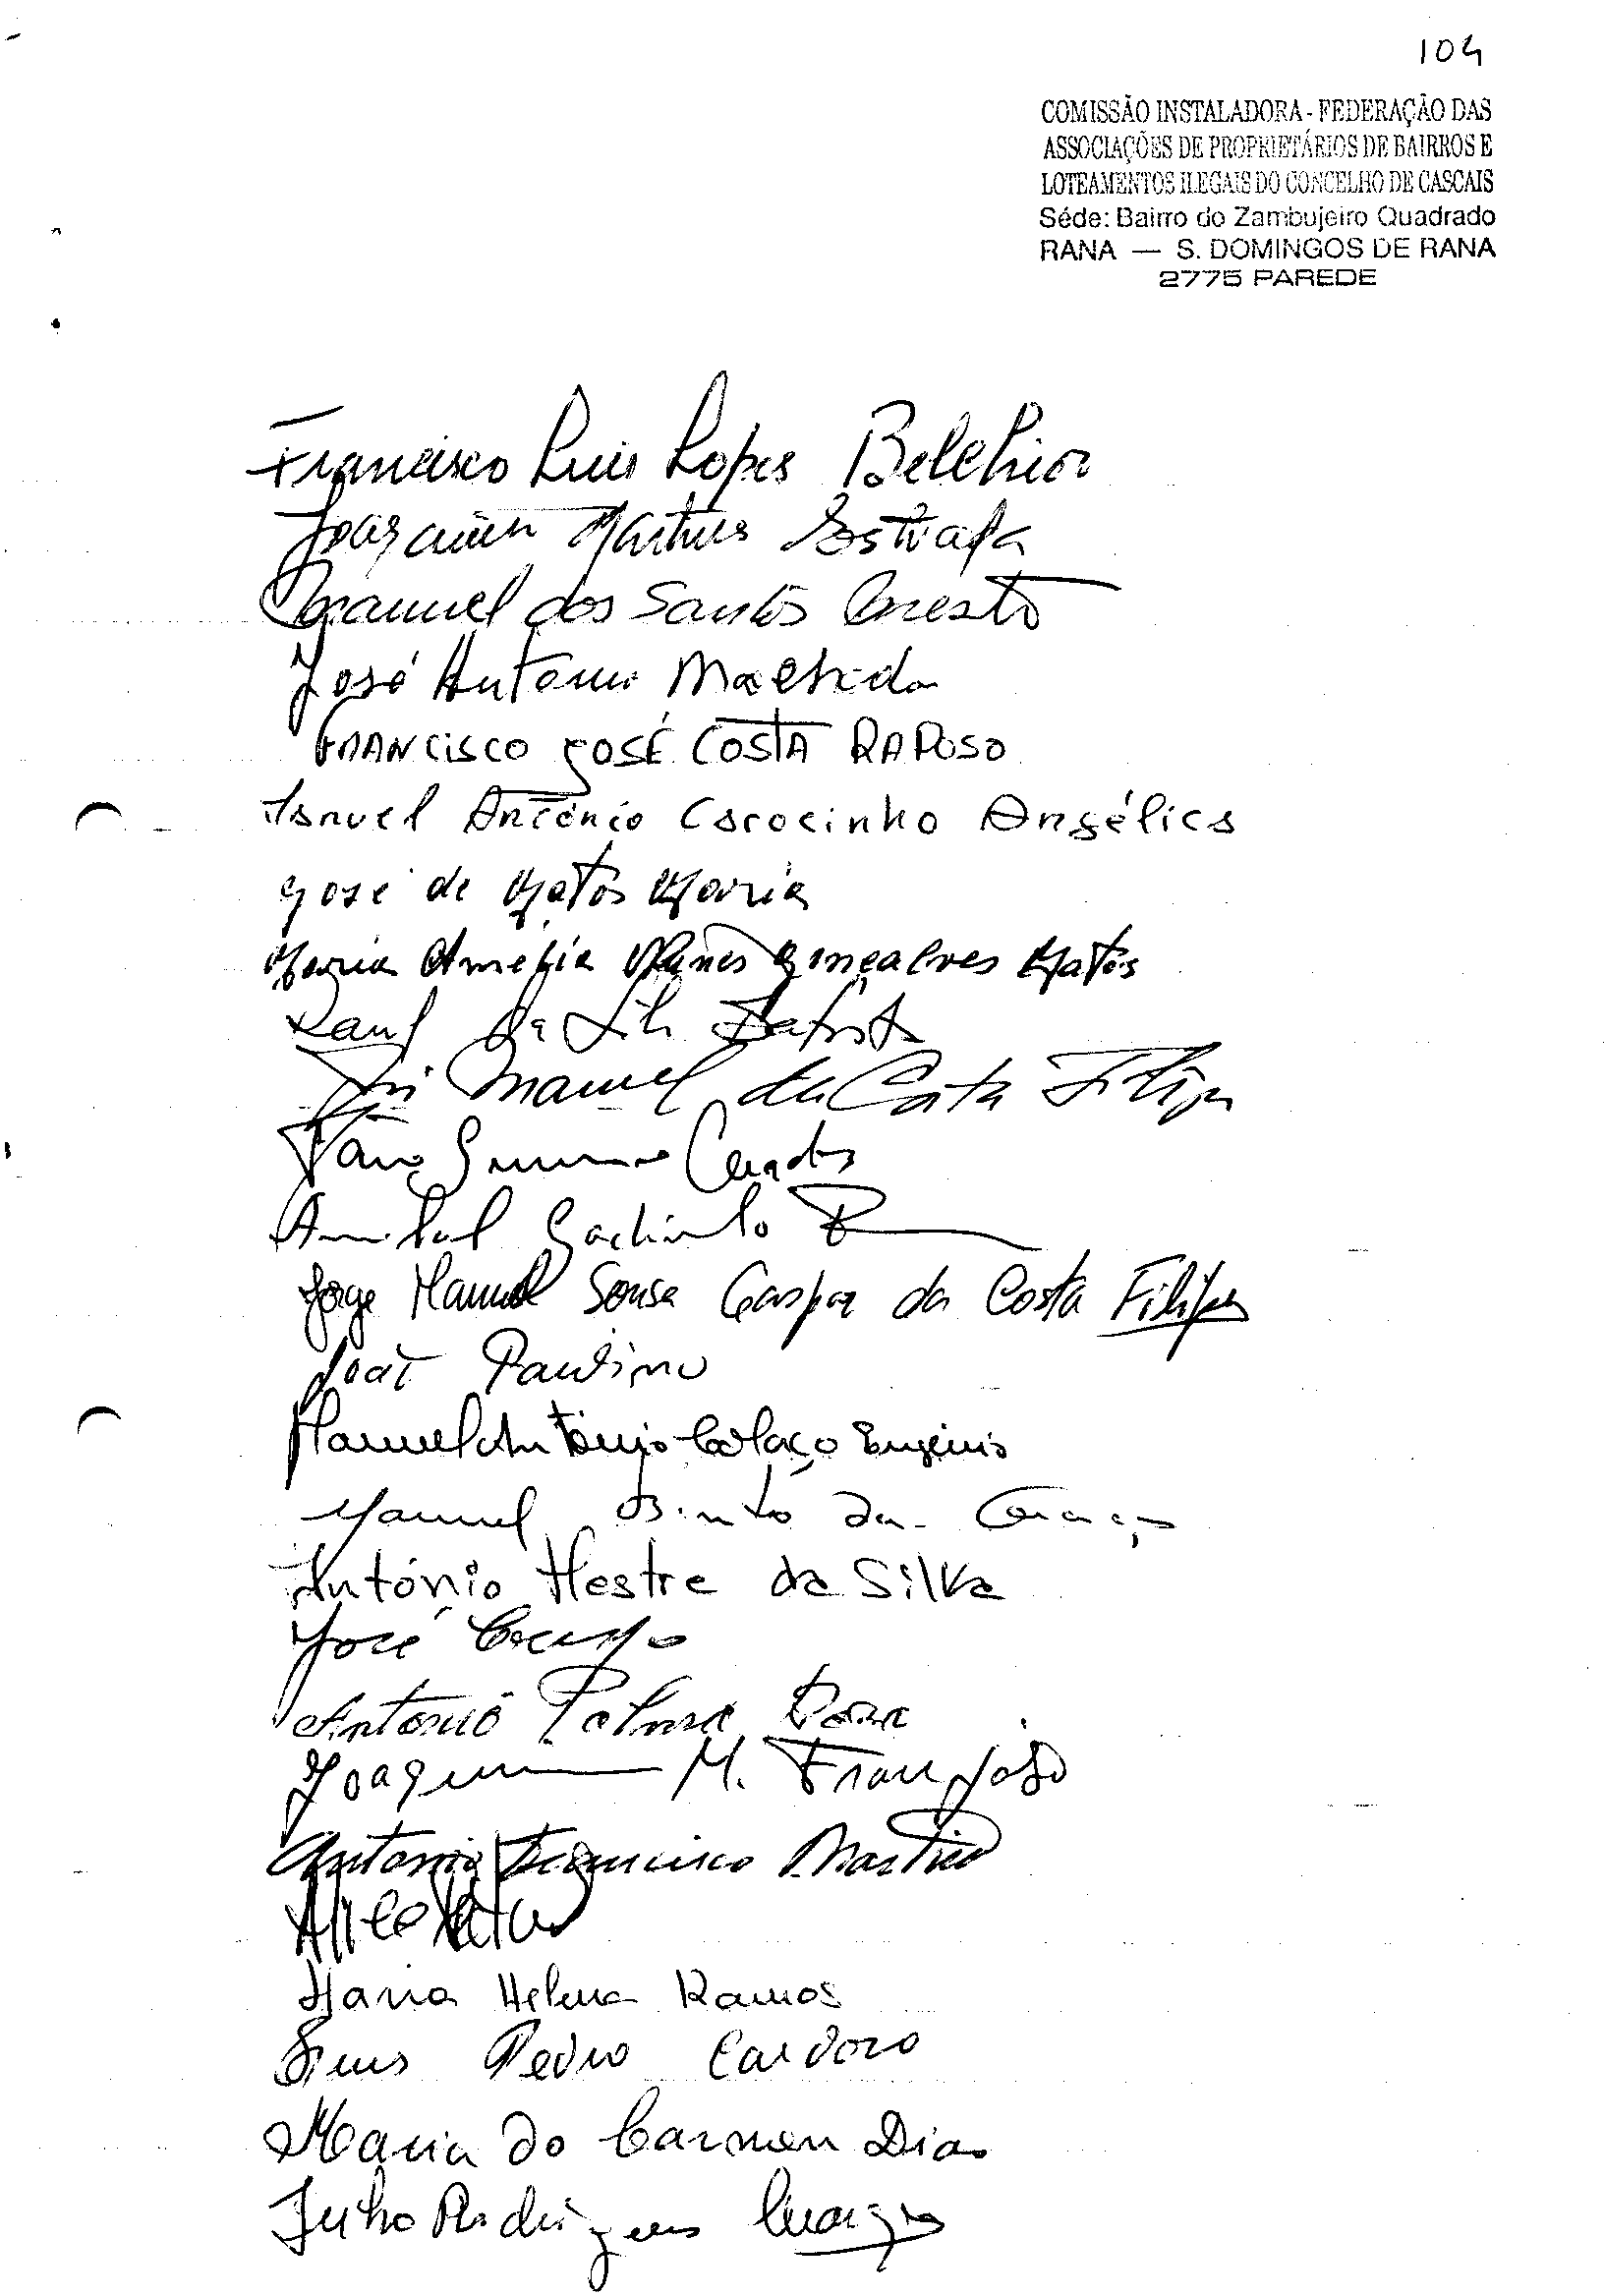 104
COMISSÃO INSTALADORA - FEDERAÇÃO DAS
ASSOCIAÇÕES DE PROPRIETÁRIOS DE BAIRROS E
LOTEAMENTOS ILEGAIS DO CONCELHO DE CASCAIS
Séde: Bairro do Zambujeiro Quadrado
RANA — S. DOMINGOS DE RANA
2775 PAREDE
Francisco Luis Lopes Belchior
Joaquim Martins Estrafa
Manuel dos Santos
José António Machado
FRANCISCO JOSÉ COSTA RAPOSO
António Carocinho Angélica
José de Matos Maria
Maria Amélia Nunes Gonçalves Matos
Raul da Batista
José Manuel da Costa Filipe
Anibal
Jorge Manuel Sousa Gaspar da Costa Filipe
João Paulino
Manuel António Colaço Eugénio
Manuel Bento da
António Mestre da Silva
José
António Palma Rosa
Joaquim M. Franjoso
Antonio Francisco Martins
Maria Helena Ramos
Luis Pedro Cardoso
Maria do Carmen Dias
Julho Rodrigues